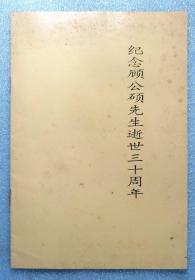 纪念顾公硕先生逝世三十周年